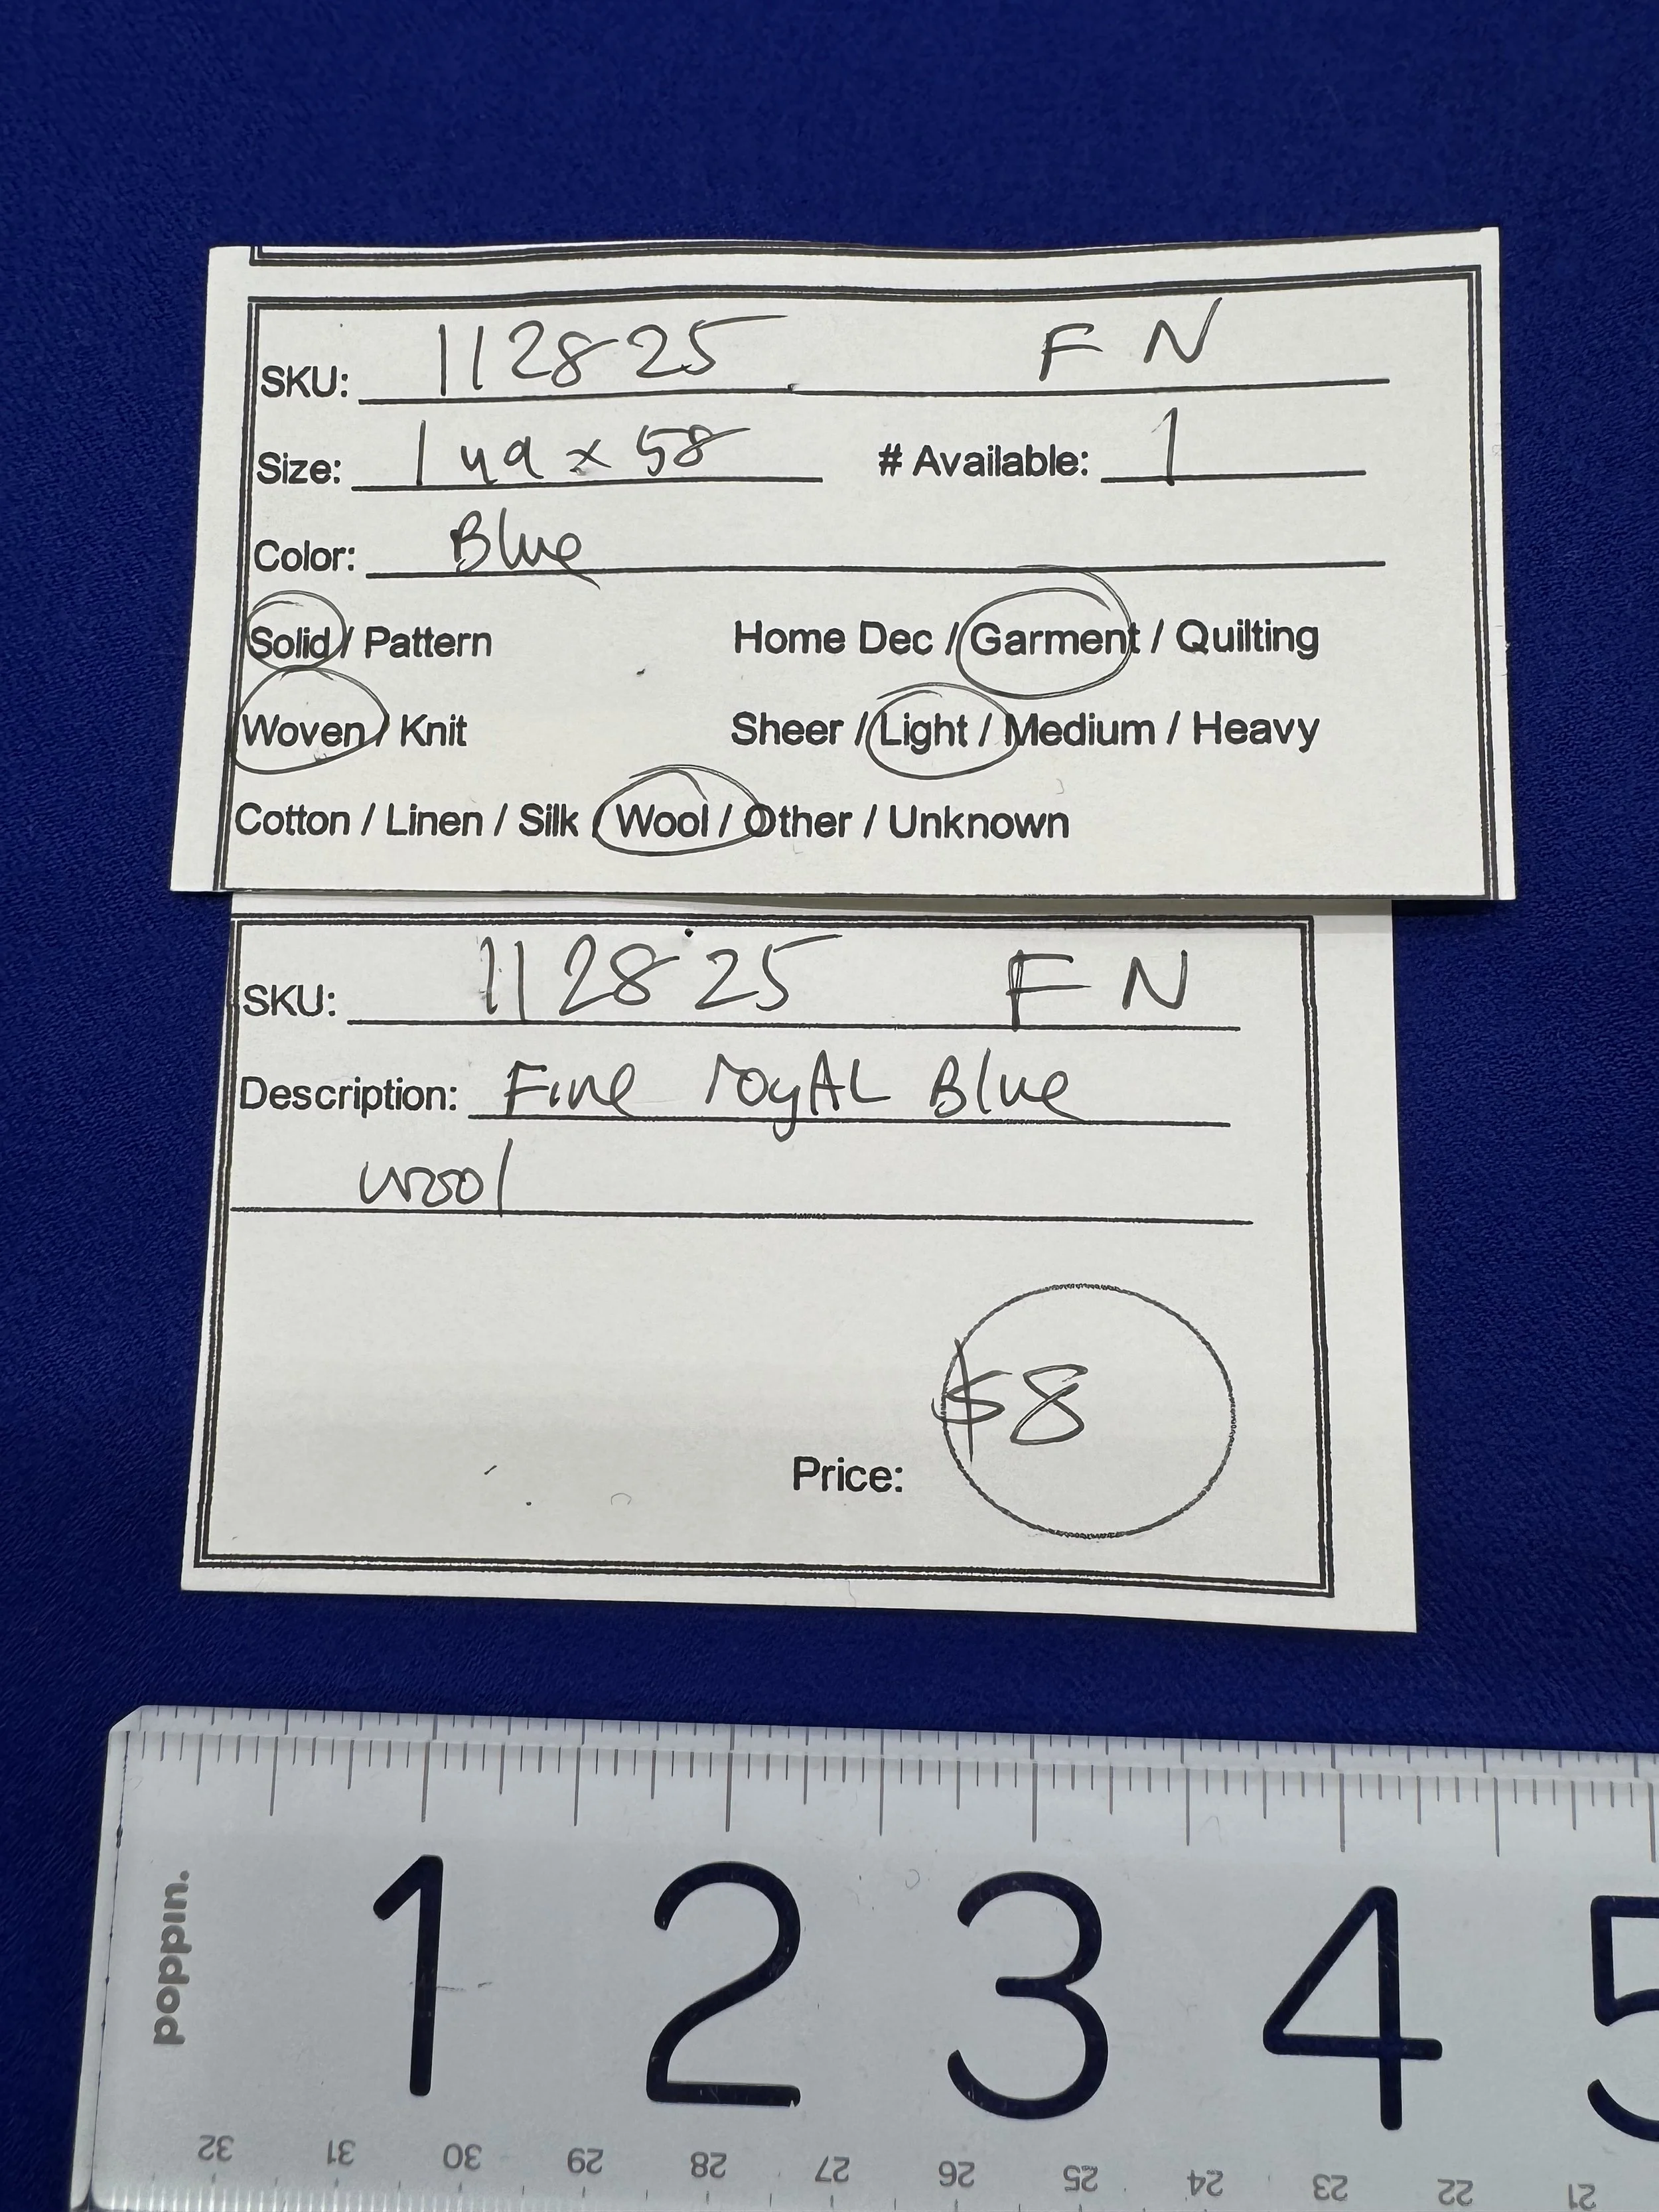 SKU: 112825 FN
Size: 1 yd x 58 # Available: 1
Color: Blue
Solid / Pattern Home Dec / Garment / Quilting
Woven / Knit Sheer / Light / Medium / Heavy
Cotton / Linen / Silk / Wool / Other / Unknown
SKU: 112825 FN
Description: Fine royAL Blue
wool
Price: $8
poppin.
1 2 3 4 5
32 31 30 29 28 27 26 25 24 23 22 21